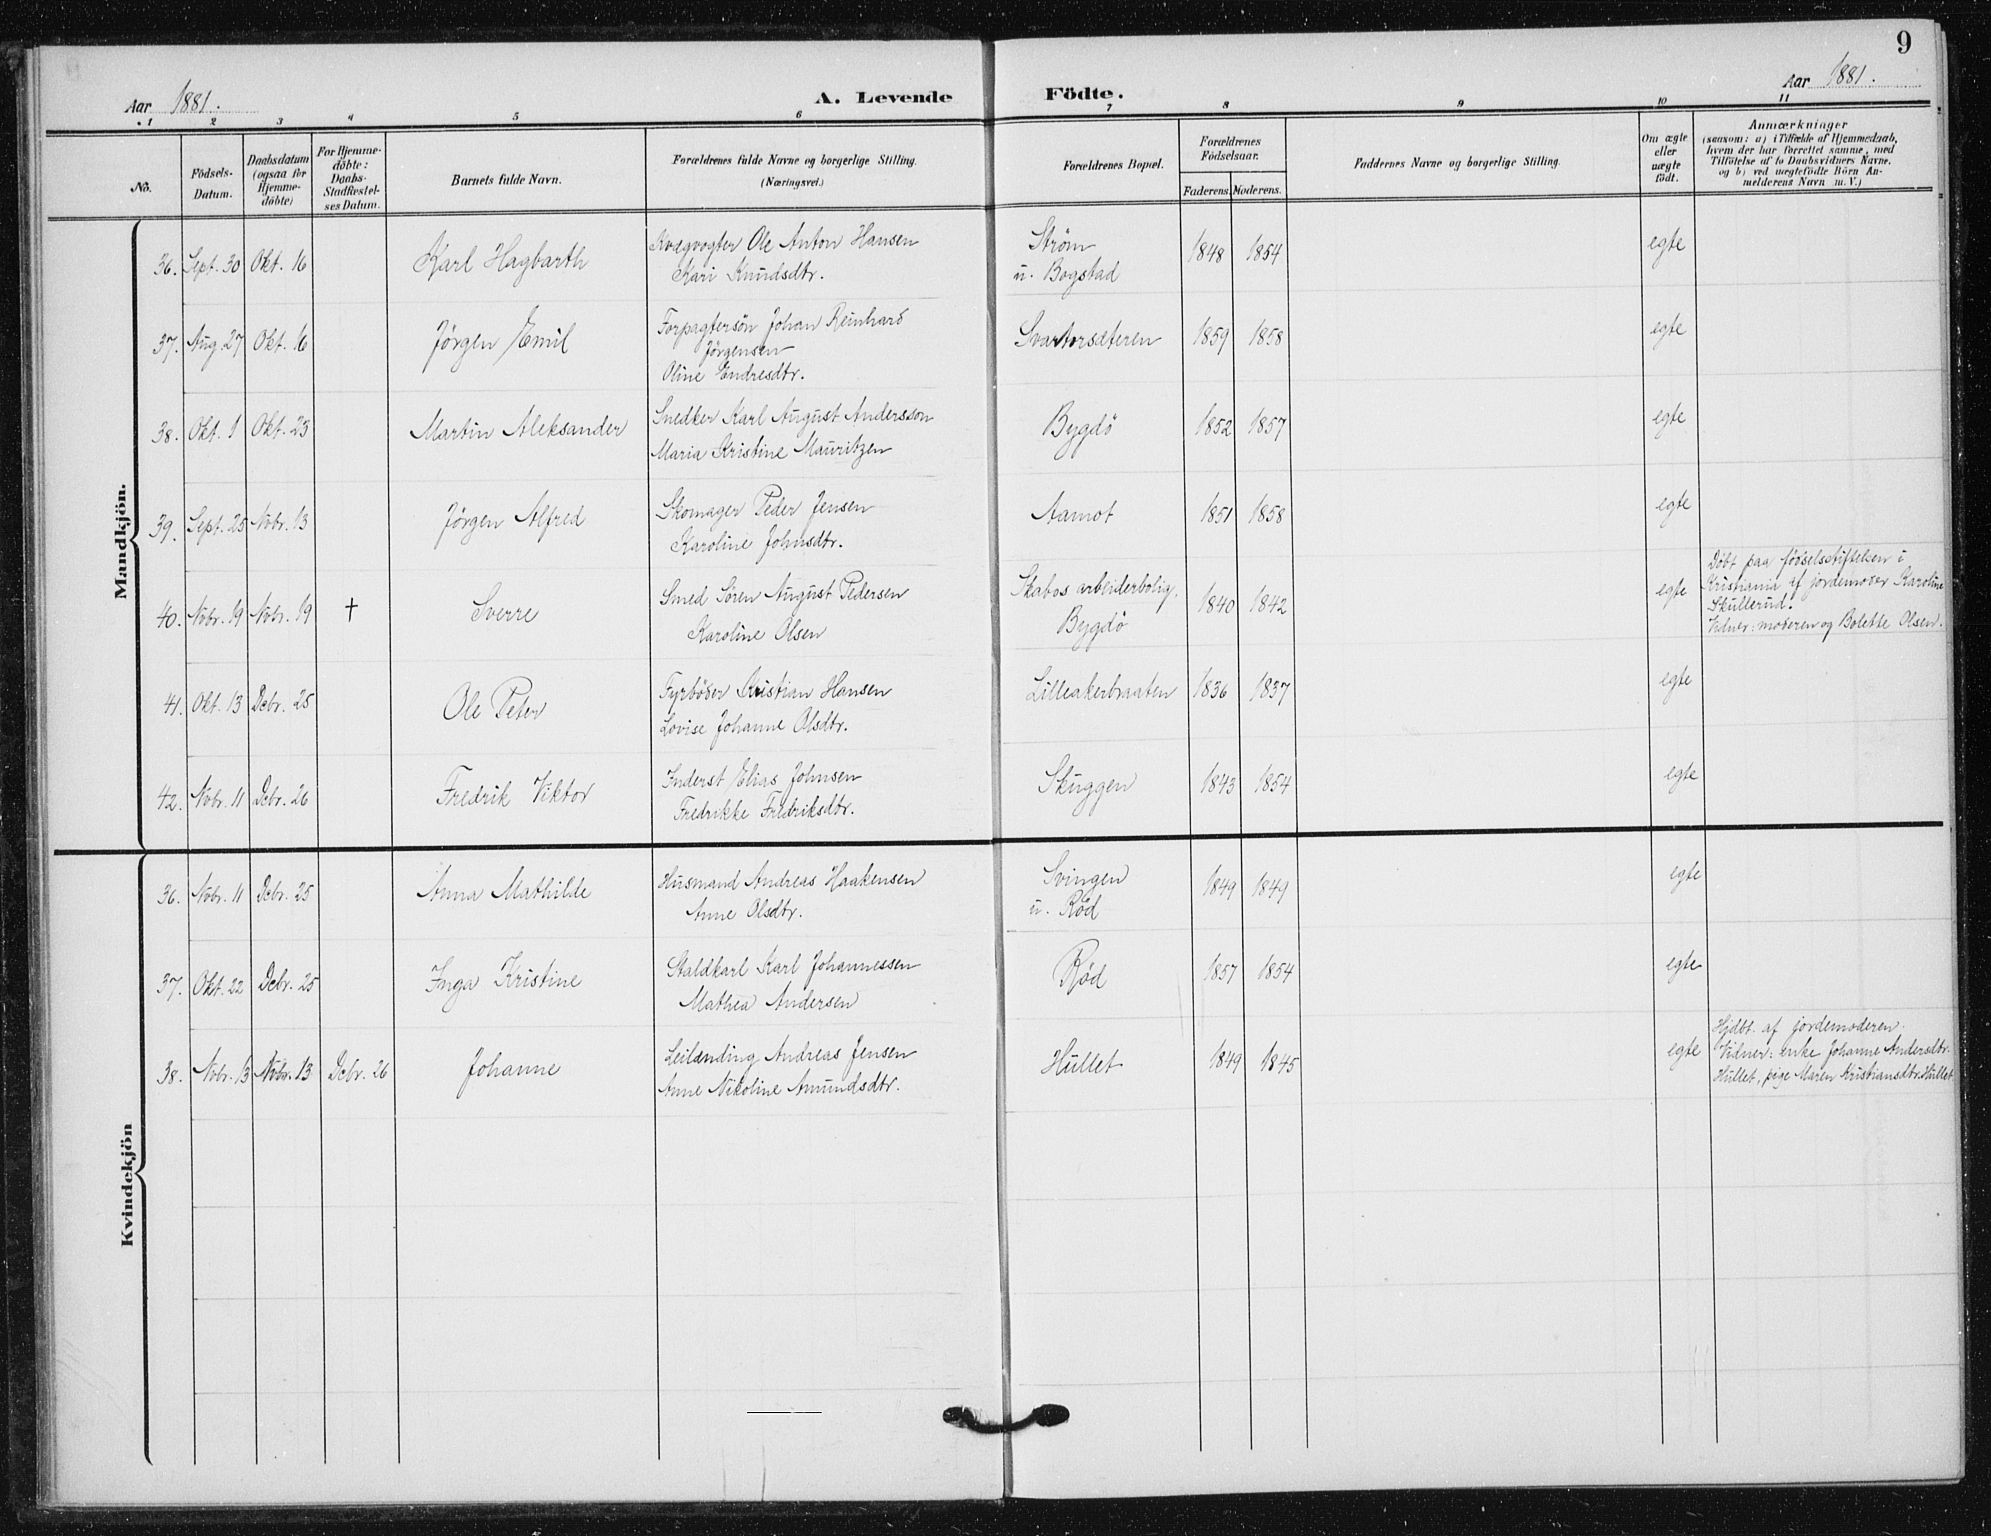 9
Aar 1881.
A. Levende Födte.
Aar 1881.
1 2 3 4 5 6 7 8 9 10 11
No.
Födsels-
Datum.
Daabsdatum
(ogsaa for
Hjemme-
döbte)
For Hjemme-
döbte:
Daabs-
Stadfæstel-
ses Datum.
Barnets fulde Navn.
Forældrenes fulde Navne og borgerlige Stilling.
(Næringsvei.)
Forældrenes Bopæl.
Forældrenes
Födselsaar.
Faderens. Moderens.
Faddernes Navne og borgerlige Stilling.
Om ægte
eller
uægte
födt.
Anmærkninger
(saasom: a) i Tilfælde af Hjemmedaab,
hvem der har forrettet samme, med
Tilföielse af to Daabsvidners Navne.
og b) ved uægtefödte Börn An-
melderens Navn m. V.)
Mandkjön.
36. Sept. 30 Okt. 16 Karl Hagbarth Kvægvogter Ole Anton Hansen Ström 1848 1854 egte
Kari Knudsdtr. u. Bogstad
37. Aug. 27 Okt. 16 Jørgen Emil Forpagtersön Johan Reinhard Svartorsæteren 1859 1858 egte
Jørgensen
Oline Endresdtr.
38. Okt. 1 Okt. 23 Martin Aleksander Snedker Karl August Andersson Bygdö 1852 1857 egte
Maria Kristine Mauritzen
39. Sept. 25 Novbr. 13 Jørgen Alfred Skomager Peder Jensen Aamot 1851 1858 egte
Karoline Johnsdtr.
40. Novbr. 19 Novbr. 19 † Sverre Smed Sören August Pedersen Skabos arbeiderbolig, 1840 1842 egte
Karoline Olsen Bygdö
Döbt paa födselsstiftelsen i
Kristiania af jordemoder Karoline
Skullerud.
Vidner: moderen og Bolette Olsen.
41. Okt. 13 Dcbr. 25 Ole Peter Fyrböder Kristian Hansen Lilleakerbraaten 1836 1837 egte
Lovise Johanne Olsdtr.
42. Novbr. 11 Dcbr. 26 Fredrik Viktor Inderst Elias Johnsen Skuggen 1843 1854 egte
Fredrikke Fredriksdtr.
Kvindekjön
36. Novbr. 11 Dcbr. 25 Anna Mathilde Husmand Andreas Haakensen Svingen 1849 1849 egte
Anne Olsdtr. u. Röd
37. Okt. 22 Dcbr. 25 Inga Kristine Staldkarl Karl Johannessen Röd 1857 1854 egte
Mathea Andersen
38. Novbr. 13 Novbr. 13 Dcbr. 26 Johanne Leilænding Andreas Jensen Hullet 1849 1845 egte
Anne Nikoline Amundsdtr.
Hjdbt. af jordemoderen.
Vidner: enke Johanne Andersdtr.
Hullet, pige Maren Kristiansdtr. Hullet